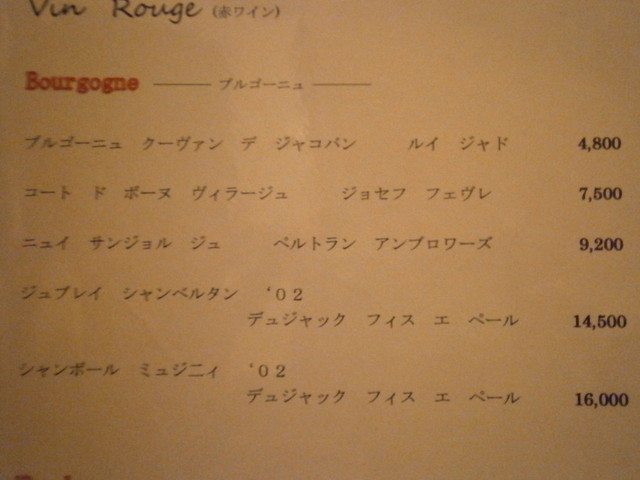 Vin Rouge (赤ワイン)
Bourgogne ブルゴーニュ
ブルゴーニュ クーヴァン デ ジャコバン ルイ ジャド 4,800
コート ド ボーヌ ヴィラージュ ジョセフ フェヴレ 7,500
ニュイ サンジョル ジュ ベルトラン アンブロワーズ 9,200
ジュブレイ シャンベルタン ‘02
デュジャック フィス エ ペール 14,500
シャンボール ミュジニィ ‘02
デュジャック フィス エ ペール 16,000